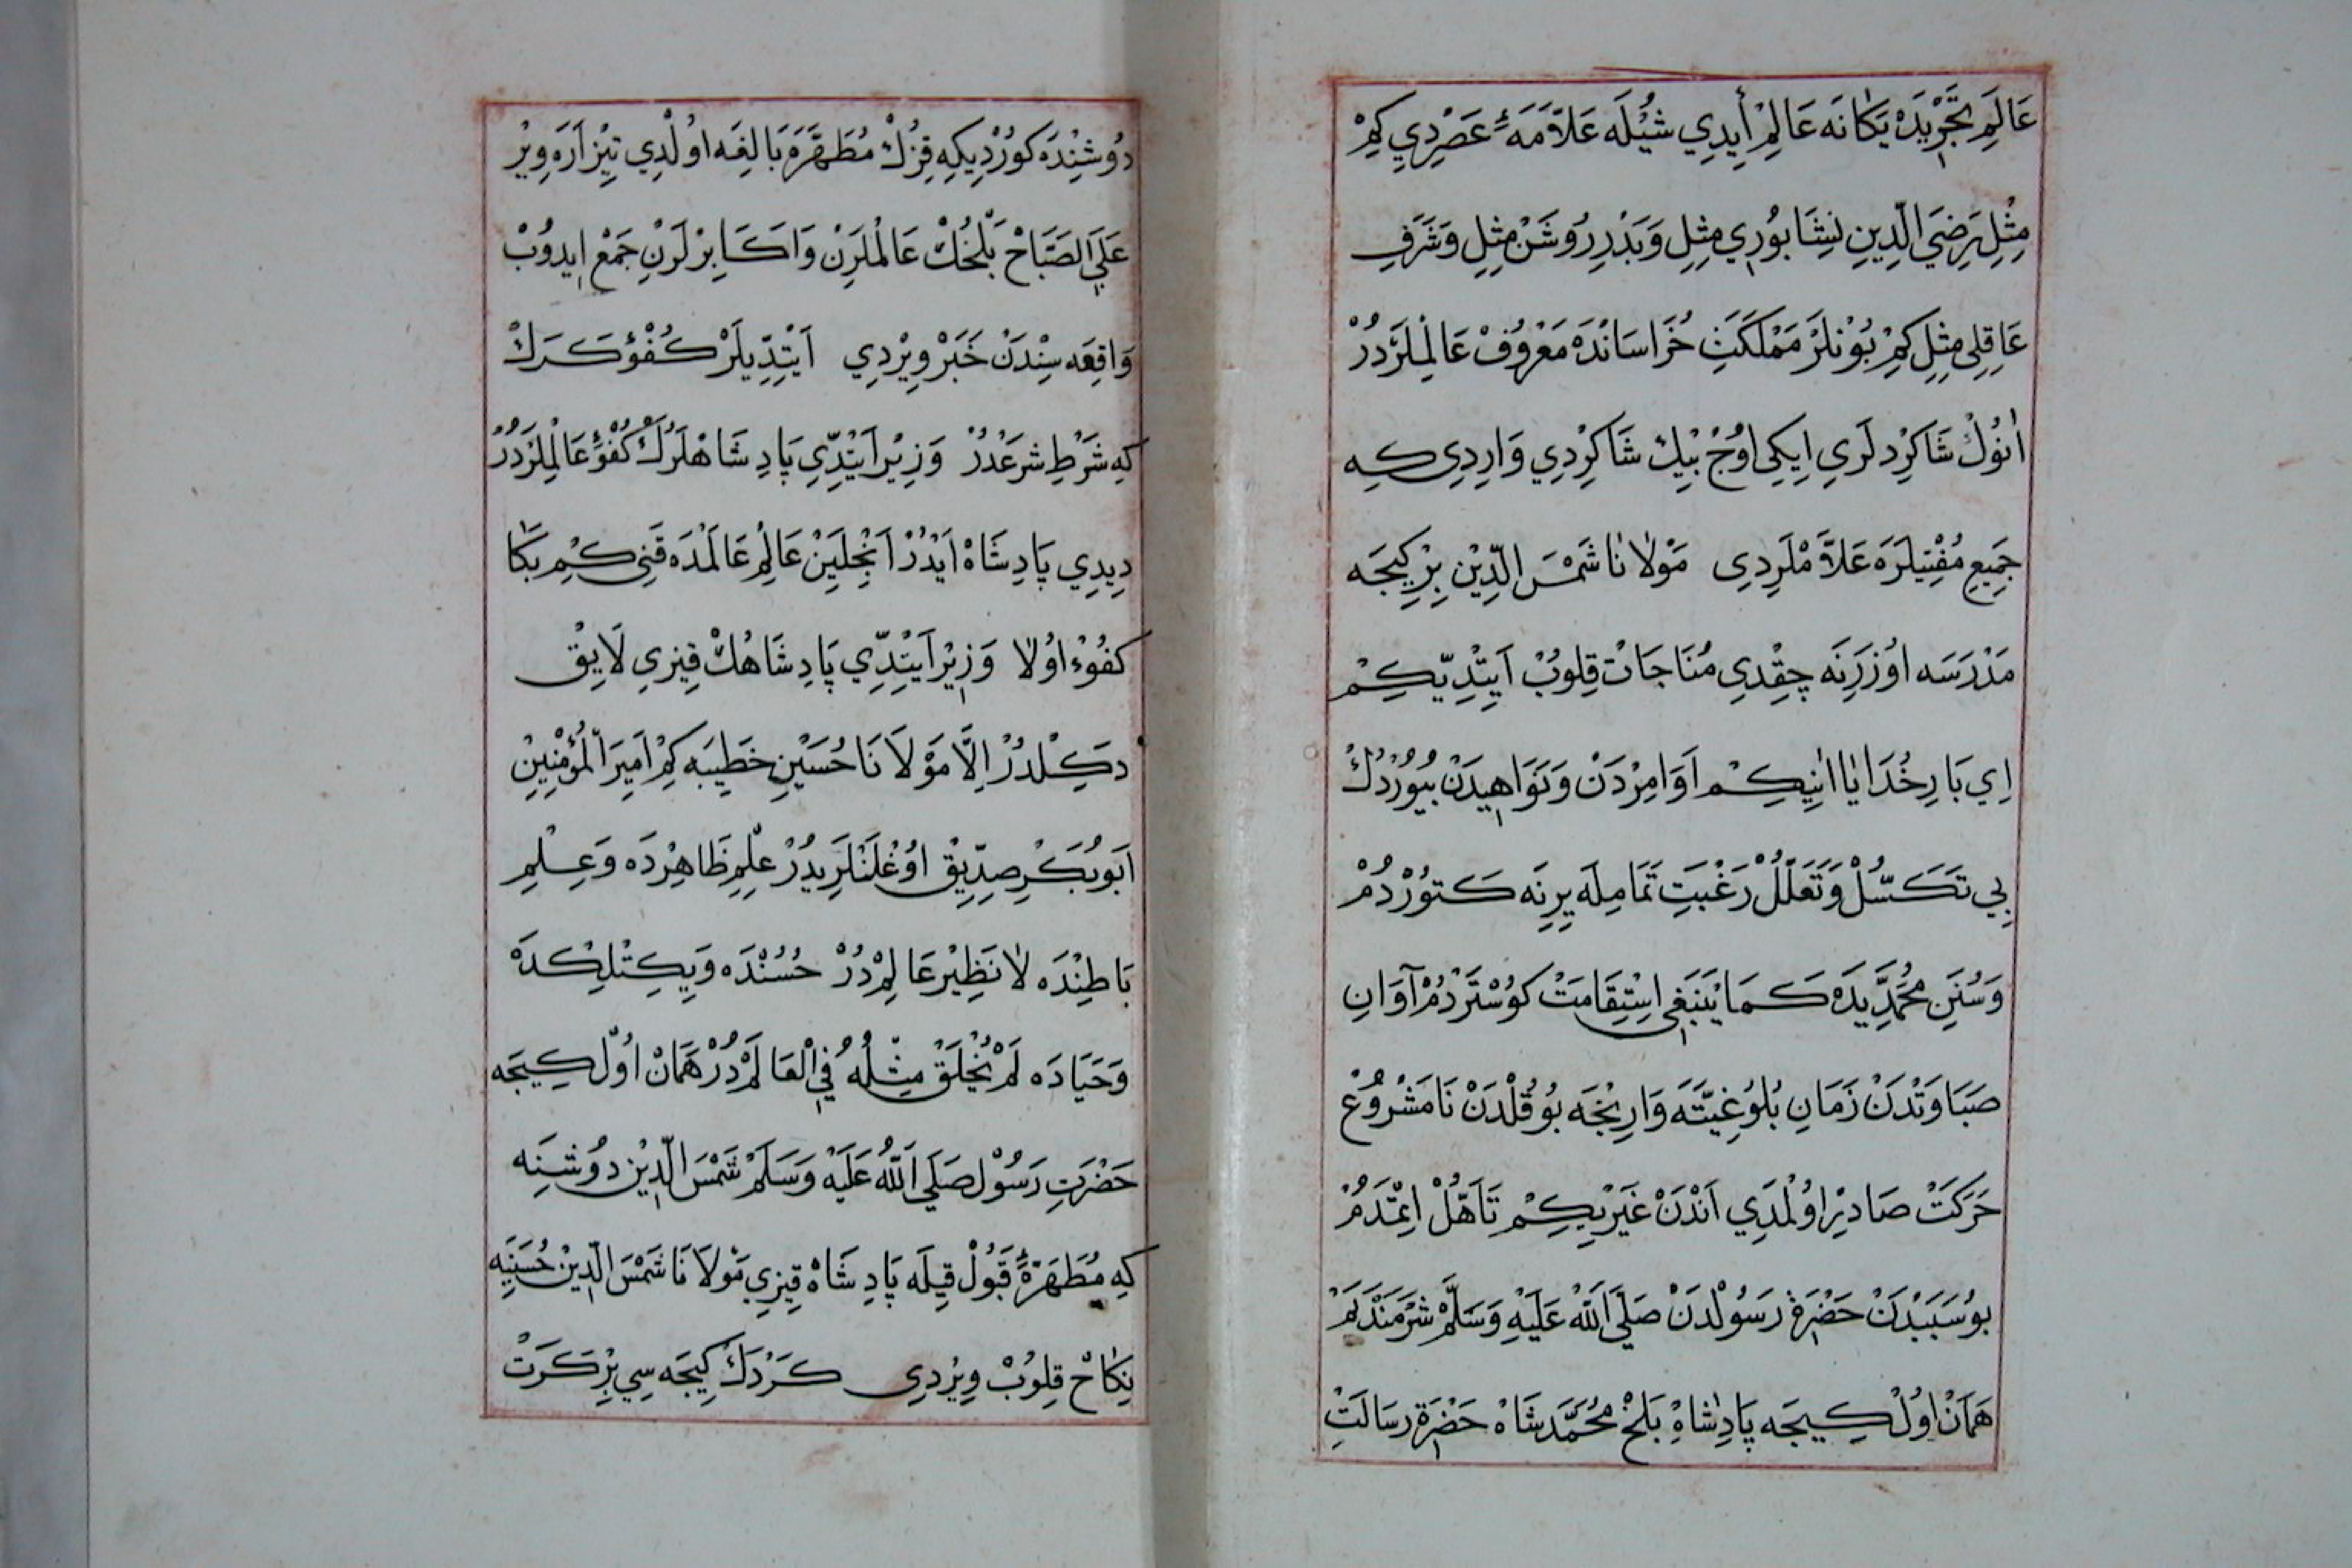 عَالَمِ تَجْرِيدَه يَكَانَه عَالِمْ أَيِدِي شُيْلَه عَلَّامَهٔ عَصْرِدِي كِمْ
مِثْلِ رَضِيَ الدِّينِ نِشَابُورِي مِثِلِ وَبَدْرِ رُوشَنْ مِثِلِ وَشَرَفِ
عَاقِلِى مِثِلِ كِمْ بُوْنلَرْ مَمْلَكَتِ خُرَاسَانْدَه مَعْرُوفْ عَالِمْلَرْدُرْ
اَنُوْڭ شَاكِرْدلَرِي اِيكِى اوُجْ بِيْڭ شَاكِرْدِي وَارِدِى كِه
جَمِيعِ مُفْتِيلَرَه عَلَّامْلَرِدِى مَوْلَانَا شَمْسَ الدِّيْنِ بِرْ كِيجَه
مَدْرَسَه اوُزَرِنَه چِقْدِى مُنَاجَاتْ قِلوُبْ اَيِتْدِيّكِمْ
اِي بَارِ خُدَايَا اانِيكِمْ اَوَامِرْدَنْ وَنَوَاهِيدَنْ بيُوُرْدُڭْ
بِي تَكَسُّلْ وَتَعَلُّلْ رَغْبَتِ تَمَامِلَه يِرِنَه كَتوُرْدُمْ
وَسُنَنِ مُحَمَّدِيَّدَه كَمَا يَنْبَغِي اِسْتِقَامَتْ كوُسْتَرْدُمْ آوَانِ
صَبَاوَتْدَنْ زَمَانِ بُلوُغِيَّتَه وَارِنْجَه بوُ قُلْدَنْ نَامَشْرُوُعْ
حَرَكَتْ صَادِرْ اوُلْمَدِي اَنْدَنْ غَيْرِيكِمْ تَاَهُّلْ اِتْمَدُمْ
بوُ سَبَبْدَنْ حَضْرَةِ رَسُولْدَنْ صَلَّيَ اللّٰهُ عَلَيْهِ وَسَلَّمْ شَرْمَنْدَيَمْ
هَمَانْ اوُلْ كِيجَه پَادِشَاهِ بَلْخْ مُحَمَّدشَاهْ حَضْرَةِ رِسَالَتِ
دوُشِنْدَه كوُرْدِيكِه قِزُڭْ مُطَهَّرَه بَالِغَه اوُلْدِي تِيْزْ اَرَه وِيْرْ
عَلَي الصَّبَاحْ بَلْخُڭْ عَالِمْلَرِنْ وَاَكَابِرْ لَرنْ جَمْعْ اِيدوُبْ
وَاقِعَه سِنْدَنْ خَبَرْ وِيْرْدِي اَيْتِدِّيلَرْ كُفُؤْ كَرَكْ
كِه شَرْطِ شَرعْدُرْ وَزِيرْ اَيِتْدِّي پَادِشَاهْلَرُڭْ كُفُؤِّ عَالِمْلَرْدُرْ
دِيدِي پَادِشَاهْ اَيْدُرْ اَنْجِلَيِنْ عَالِمْ عَالَمْدَه قَنِى كِمْ بَكَا
كفُوُءْ اوُلَا وَزِيْرْ اَيِتْدِّي پَادِشَاهُڭْ قِيزِي لَايِقْ
دكِلْدُرْ اِلَّا مَوْلَانَا حُسَيْنِ خَطِيبَه كِمْ اَمِيرَ الْمُؤْمِنِينْ
اَبوُبَكْرِ صِدِّيقْ اوُغْلَنْلَرِيدُرْ عِلْمِ ظَاهِرْدَه وَعِلْمِ
بَاطِنْدَه لَا نَظِيرْ عَالِمْ دُرْ حُسْنْدَه وَيِكِتْلِكدَه
وَحَيَادَه لَمْ يُخْلَقْ مِثْلُهُ فِي الْعَالَمْ دُرْ هَمَانْ اوُلْ كِيجَه
حَضْرَتِ رَسُوْل صَلَي اَللّٰهُ عَلَيْهْ وَسَلَمْ شَمْسَ الدِّيْن دوُشنِه
كِه مُطَهَرَةْ قَبُولْ قِيلَه پَادِشَاهْ قِيزِي مَوْلَانَا شَمْسَ الدِّيْن حُسَيْنِه
نِكَاحْ قِلوُبْ وِيْرْدِى كَرْدَكْ كِيجَه سِي بِرْ كَرَتْ